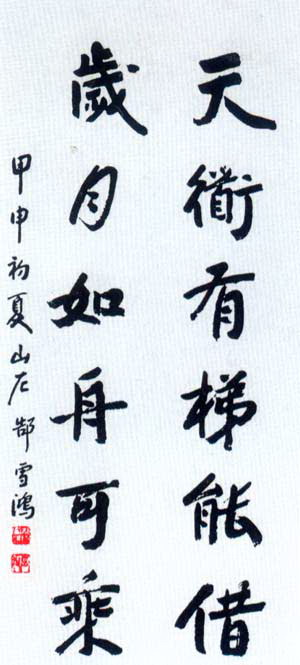 天衢有梯能借
歲月如舟可乘
甲申初夏山左郜雪鴻